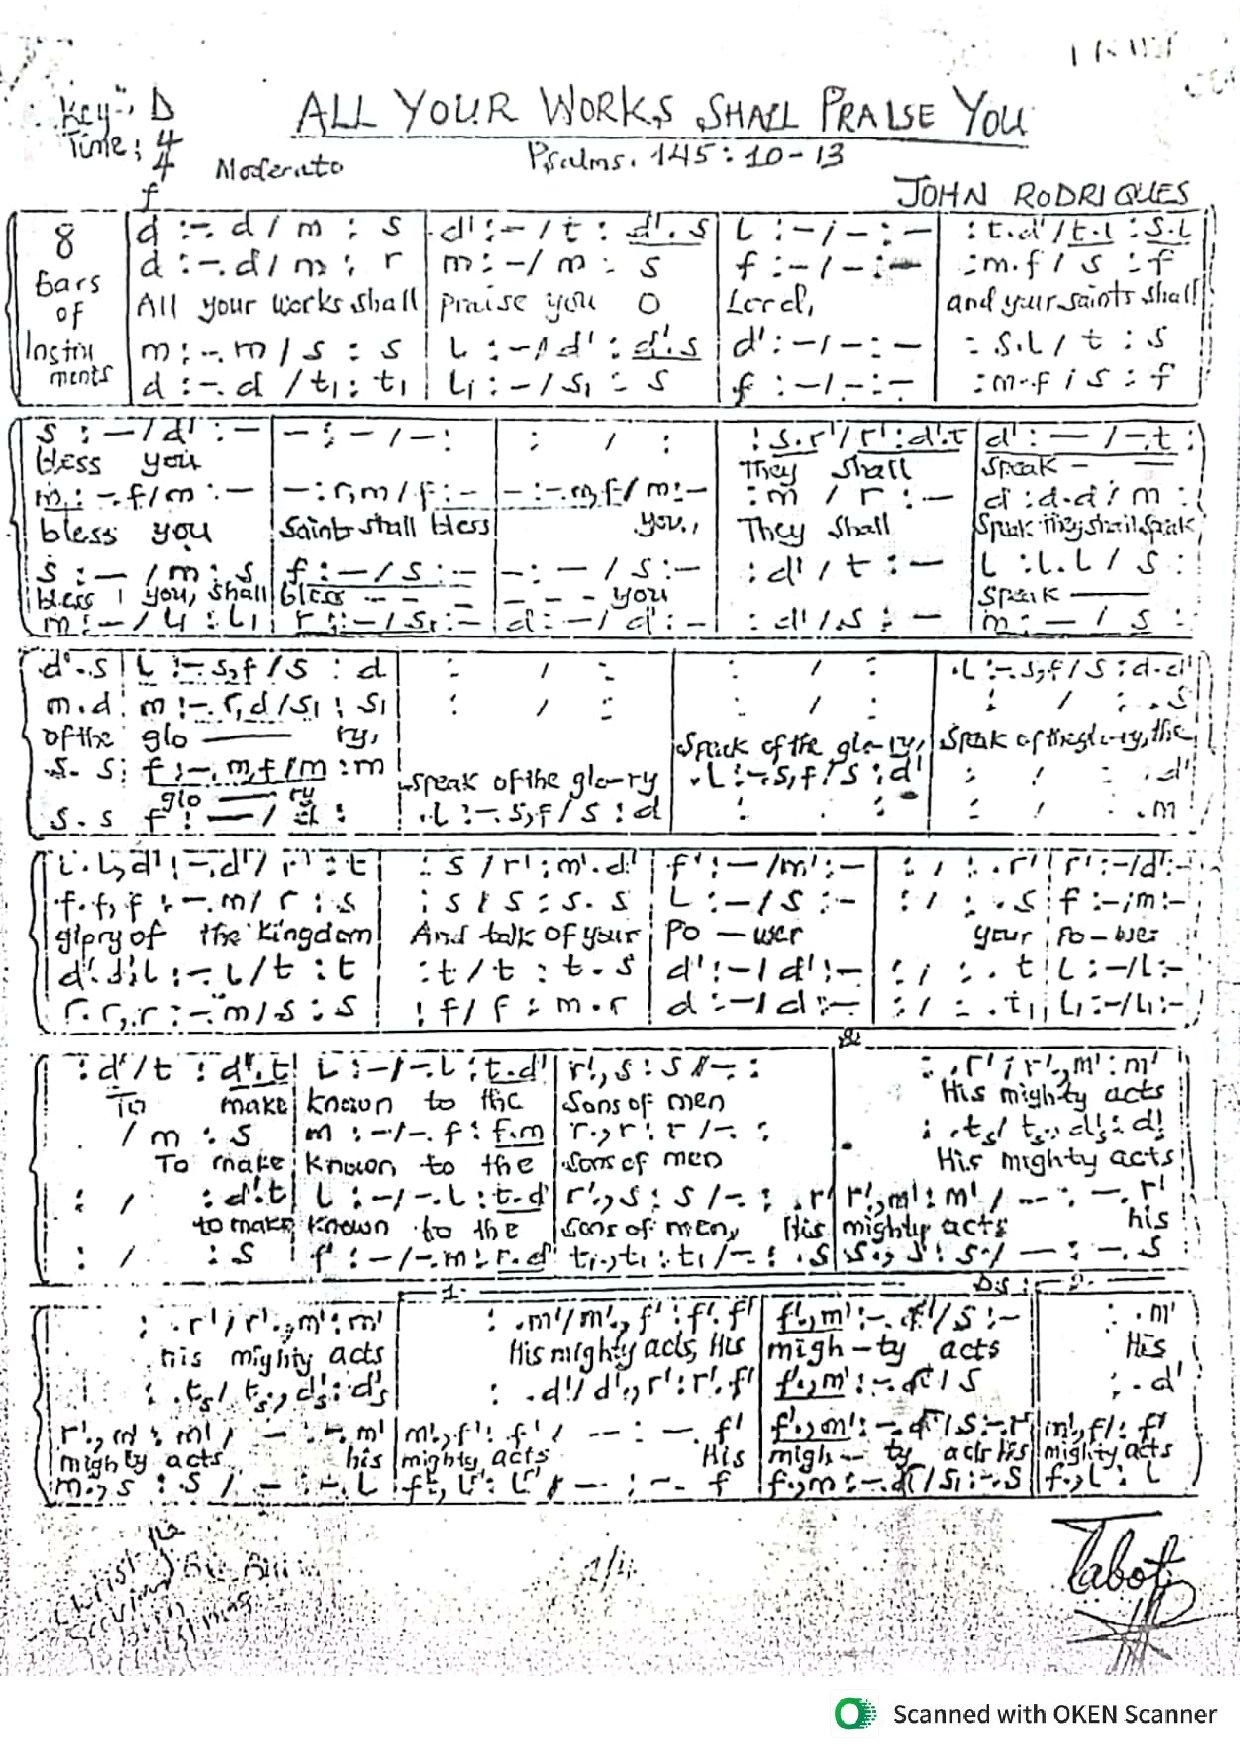 Key: D
ALL YOUR WORKS SHALL PRAISE YOU
Time: 4/4
Moderato
Psalms. 145:10-13
f
JOHN RODRIQUES
8 bars of Instruments
d :-. d / m : s | d' :- / t : d'. s | L :- / - : - | : t.d' / t.l : s.l
d :-. d / m : r | m :- / m : s | f :- / - : - | : m.f / s : f
All your works shall | praise you O | Lord, | and your saints shall
m :-. m / s : s | L :- / d' : d'. s | d' :- / - : - | : s.l / t : s
d :-. d / t₁ : t₁ | L₁ :- / s₁ : s | f :- / - : - | : m.f / s : f
s : — / d' : — | - : - / - : | : / : | : s.r' / r' : d'.t | d' : — / -.t :
bless you | They shall | Speak — —
m :-. f / m : — | — : r,m / f : - | - :-. m,f / m :- | : m / r : — | d : d.d / m :
bless you | Saints shall bless | you, | They shall | Speak they shall speak
s : — / m : s | f : — / s : — | - : — / s : — | : d' / t : — | L : l.l / s :
bless you, shall | bless - - - | - - - you | Speak ———
m : — / L₁ : L₁ | r : - / s₁ : - | d : — / d : - | : d' / s : — | m : — / s :
d'. s | L :-. s,f / s : d | : / : | : / : | . L :-. s,f / s : d.d'
m.d | m :-. r,d / s₁ : s₁ | : / : | : / : | : / : . s
of the glo ——— ry, | Speak of the glo-ry, | Speak of the glo-ry, the
s. s | f :-. m,f / m : m | . L :-. s,f / s : d' | : / : . d'
glo —— ry | speak of the glo-ry
s. s | f : — / d : | . L :-. s,f / s : d | : : | : / : . m
L. L, d' :-. d' / r' : t | : s / r' : m'. d' | f' : — / m' : — | : / : . r' | r' : - / d' : -
f. f, f :-. m / r : s | : s / s : s. s | L : — / s : - | : / : . s | f : - / m : -
glory of the Kingdom | And talk of your | Po — wer | your | Po-wer
d'. d', L :-. L / t : t | : t / t : t. s | d' : — / d' : — | : / : . t | L : — / L : -
r. r, r :-. m / s : s | : f / f : m. r | d : — / d : — | : / : . t₁ | L₁ : - / L₁ : -
: d' / t : d'.t | L : - / -. L : t.d' | r'., s : s / - : | : . r' / r'., m' : m'
To make | known to the | Sons of men | His mighty acts
/ m : s | m : - / -. f : f.m | r., r : r / - : | : . ts / ts., ds : d
To make | known to the | sons of men | His mighty acts
: / : d'.t | L : - / -. L : t.d' | r'., s : s / - : . r' | r'., m' : m' / — : -. r'
to make | known to the | sons of men, His | mighty acts his
: / : s | f : - / -. m : r.d | t₁., t₁ : t₁ / - : . s | s., s : s / — : -. s
1. D.S. 2.
: . r' / r'., m' : m' | : . m' / m'., f' : f'. f' | f'., m' :-. r' / s : - | : . m'
his mighty acts | His mighty acts, His | migh-ty acts | His
: . ts / ts., ds : ds | : . d' / d'., r' : r'. f' | f'., m' :-. r' / s | : . d'
r'., m' : m' / - : -. m' | m'., f' : f' / — : -. f' | f'., m' :-. r' / s :-. r' | m'., f' : f'
mighty acts his | mighty acts His | migh-ty acts his | mighty acts
m., s : s / - : -. L | f., L : L / — : -. f | f., m :-. r / s₁ :-. s | f., L : L
2/4
Tabot
Scanned with OKEN Scanner